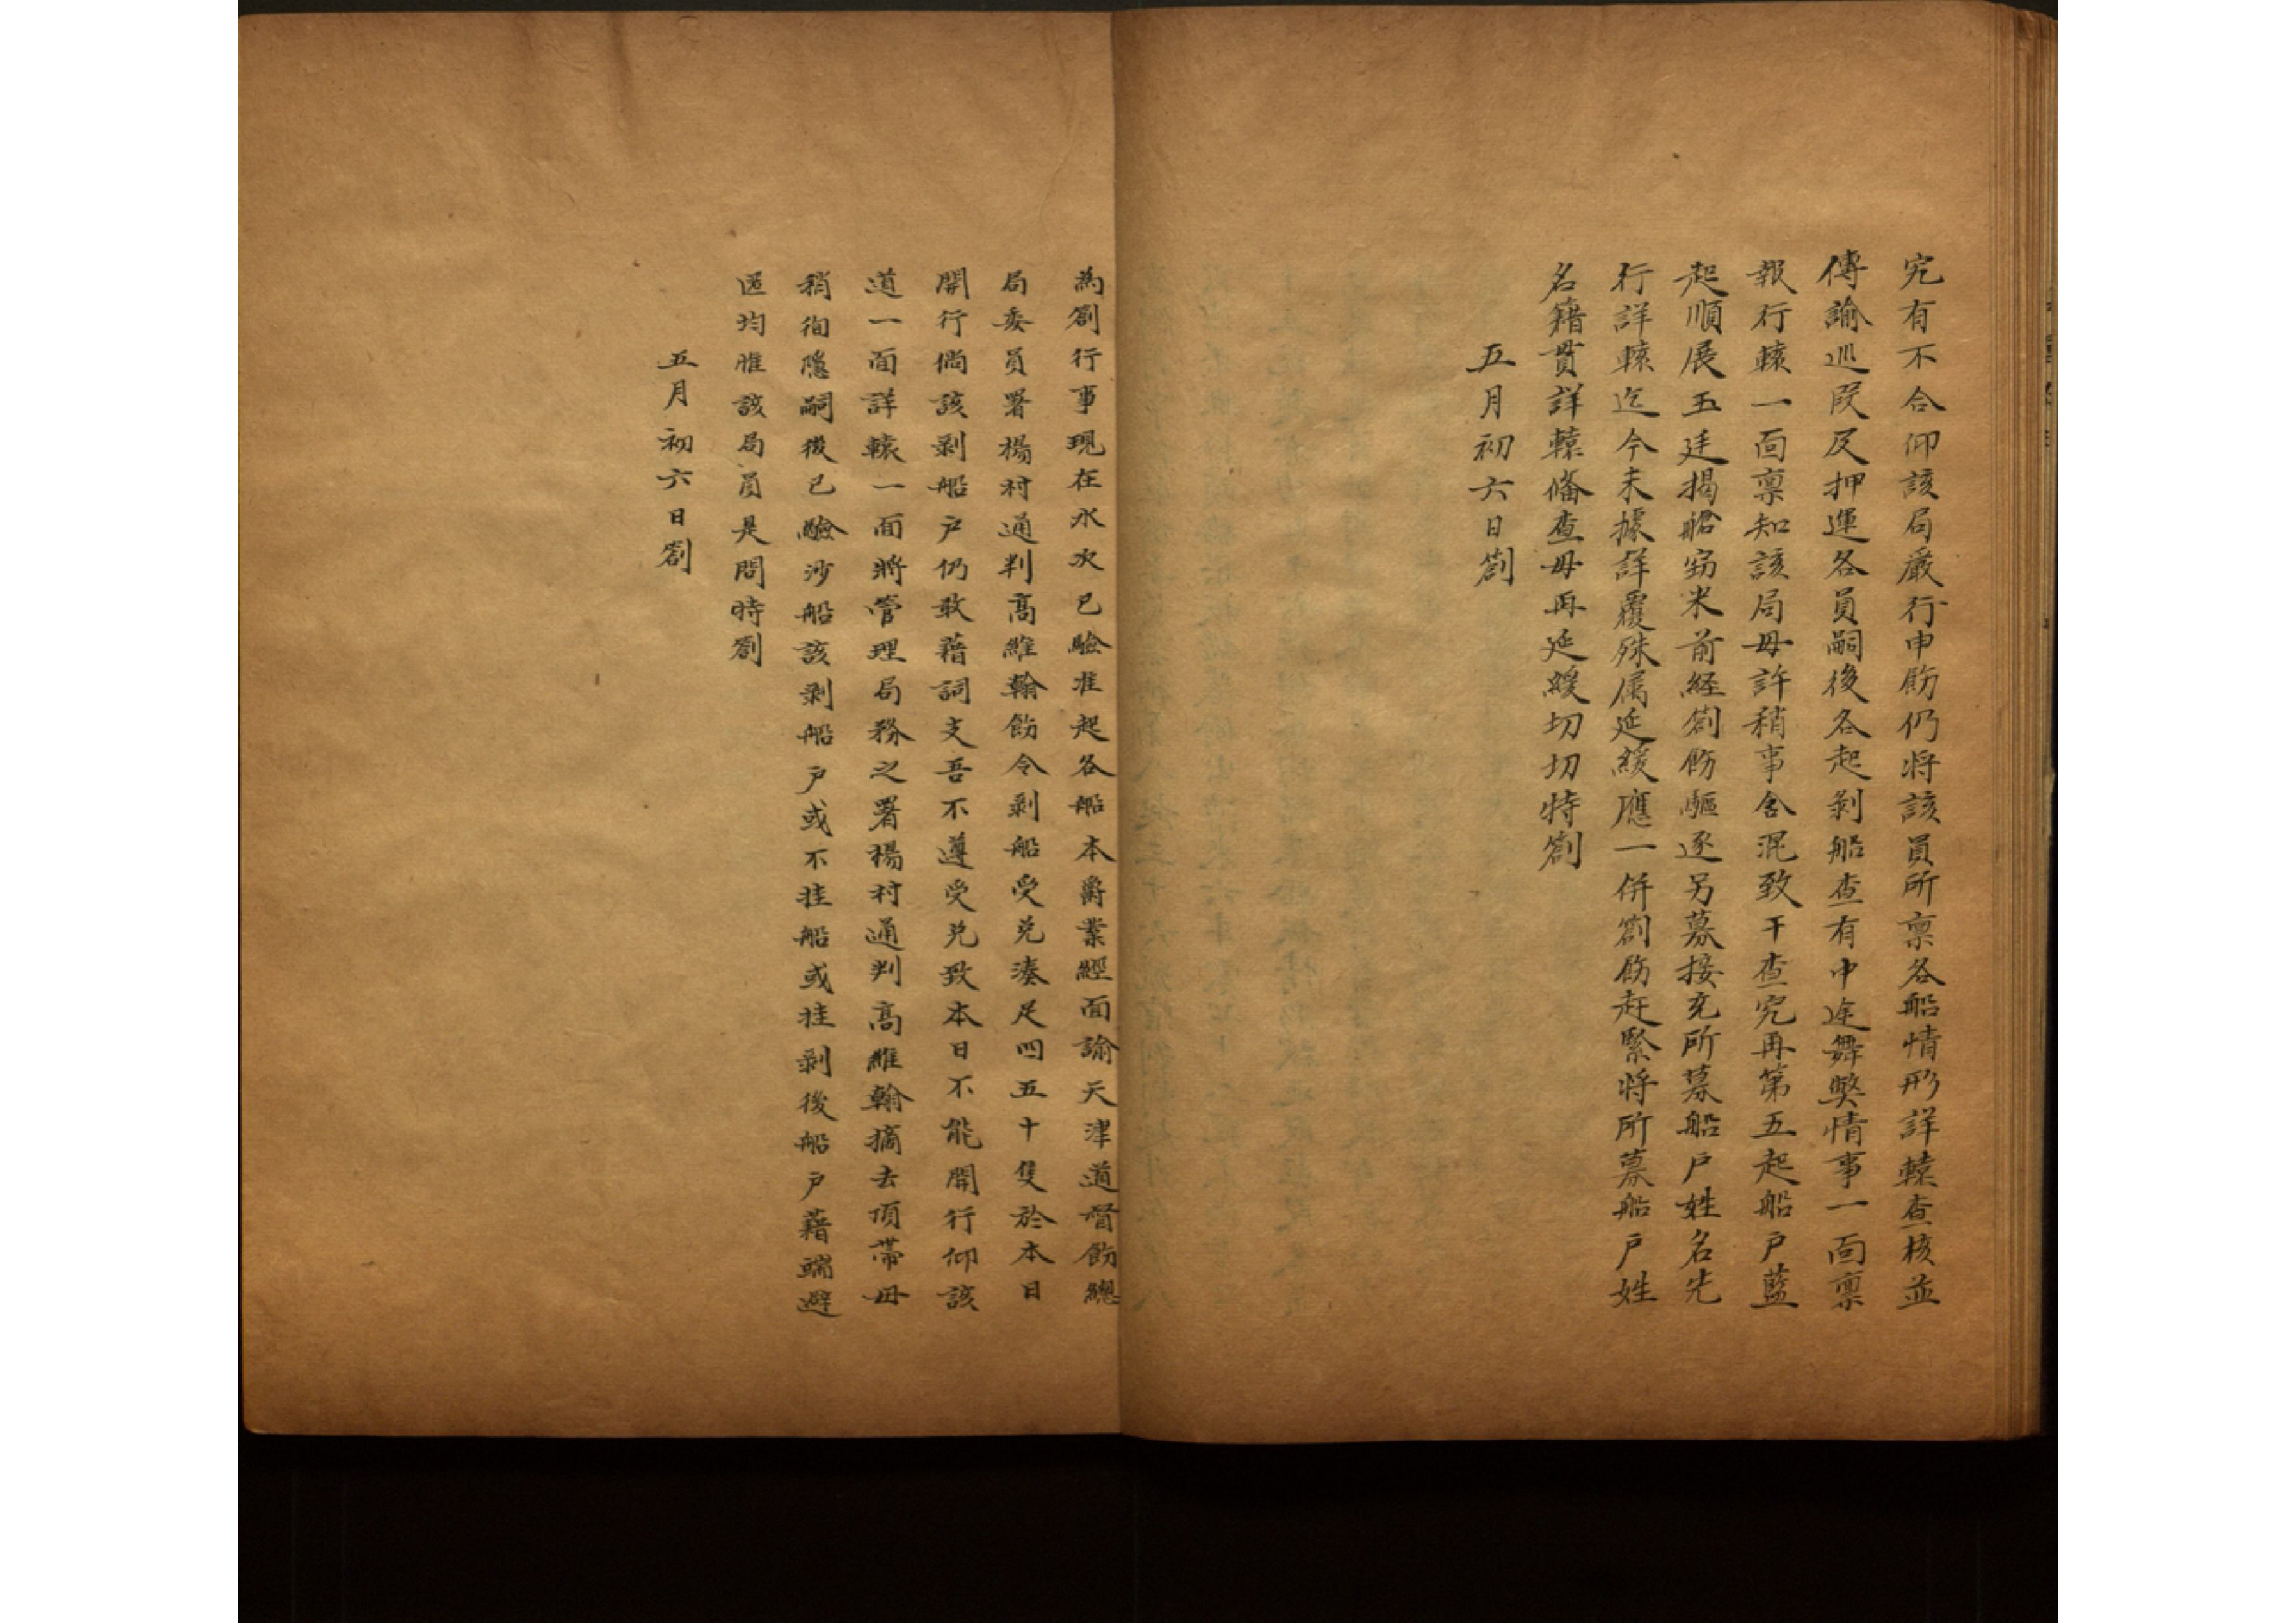 究有不合仰該局嚴行申飭仍将該員所禀各船情形詳轅查核並
傳諭巡段及押運各員嗣後各起剥船查有中途舞獘情事一面禀
報行轅一面禀知該局毋許稍事含混致干查究再第五起船户藍
起順展玉廷揭艙窃米前経劄飭驅逐另募接充所募船户姓名先
行詳轅迄今未據詳覆殊属延緩應一併劄飭赶緊将所募船户姓
名籍貫詳轅俻查毋再延緩切切特劄
五月初六日劄
為劄行事現在水次已驗准起各船本爵業經面諭天津道督飭總
局委員署楊村通判高維翰飭令剥船受兑湊足四五十隻於本日
開行倘該剥船户仍敢藉詞支吾不遵受兑致本日不能開行仰該
道一面詳轅一面將管理局務之署楊村通判高維翰摘去頂帶毋
稍徇隱嗣後已驗沙船該剥船户或不挂船或挂剥後船户藉端避
匿均惟該局員是問特劄
五月初六日劄